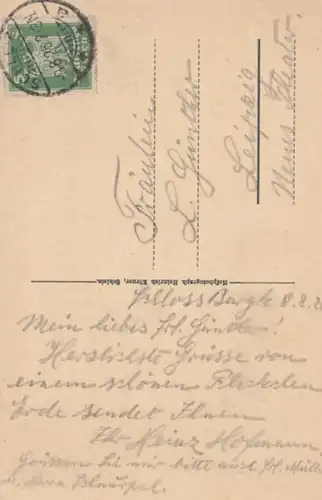 Fräulein
L. Günther
Leipzig
Neues Theater
Hofphotograph Heinrich Körner, Schleiz.
Schloss Burgk 8.8.2
Mein liebes Frl. Günther!
Herzlichste Grüsse von
einem schönen Fleckchen
Erde sendet Ihnen
Ihr Heinz Hofmann
Grüssen Sie mir bitte auch Frl. Müller
u. Herrn